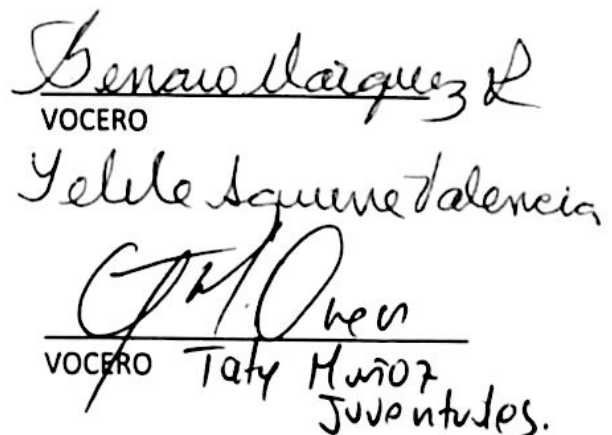 Genaro Márquez R
VOCERO
Yelile Aguirre Valencia
VOCERO Taty Muñoz
Juventudes.